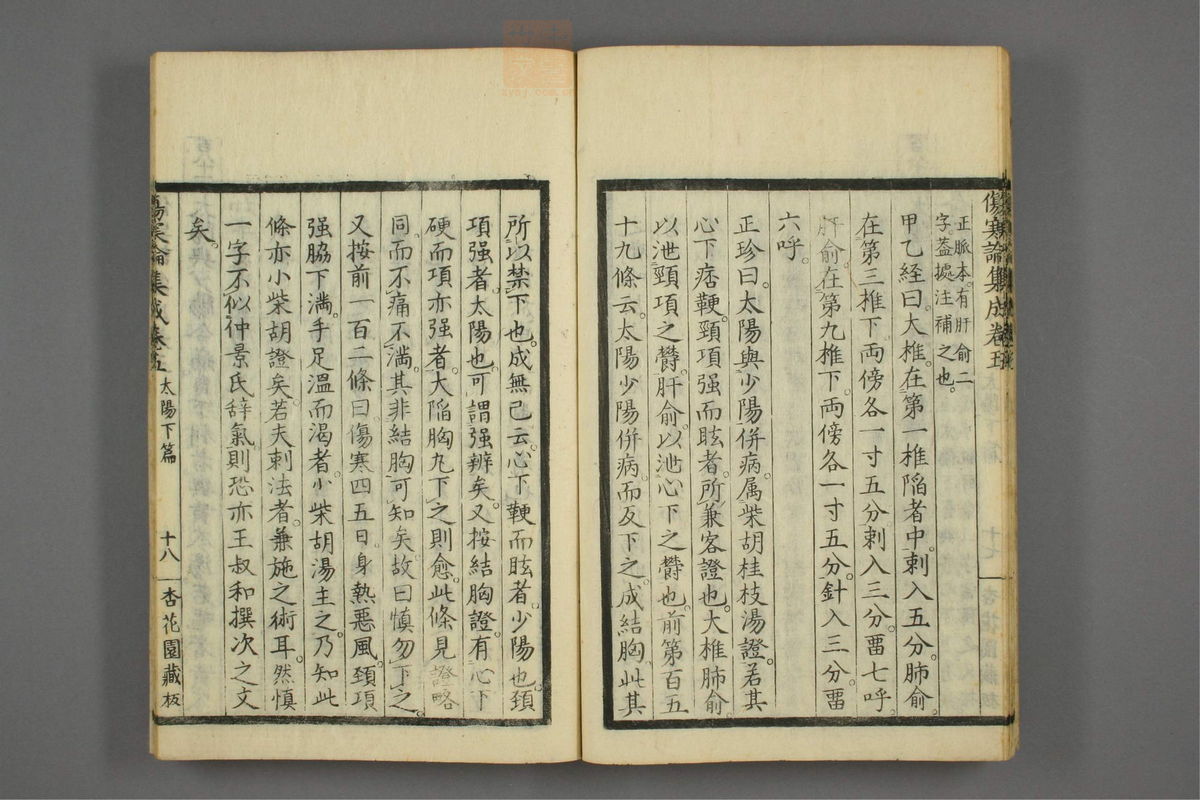 傷寒論集成卷五
正脈本有肝俞二
字葢據注補之也
甲乙経曰大椎在第一椎陷者中刺入五分肺俞
在第三椎下両傍各一寸五分刺入三分畱七呼
肝俞在第九椎下両傍各一寸五分針入三分畱
六呼
正珍曰太陽與少陽併病属柴胡桂枝湯證若其
心下痞鞕頸項强而眩者所兼客證也大椎肺俞
以泄頸項之欝肝俞以泄心下之欝也前第百五
十九條云太陽少陽併病而反下之成結胸此其
所以禁下也成無己云心下鞕而眩者少陽也頸
項强者太陽也可謂强辨矣又按結胸證有心下
硬而項亦强者大陷胸丸下之則愈此條見證略
同而不痛不満其非結胸可知矣故曰慎勿下之
又按前一百二條曰傷寒四五日身熱悪風頸項
强脇下満手足溫而渴者小柴胡湯主之乃知此
條亦小柴胡證矣若夫刺法者兼施之術耳然慎
一字不似仲景氏辞氣則恐亦王叔和撰次之文
矣
傷寒論集成卷五 太陽下篇 十八 杏花園藏板